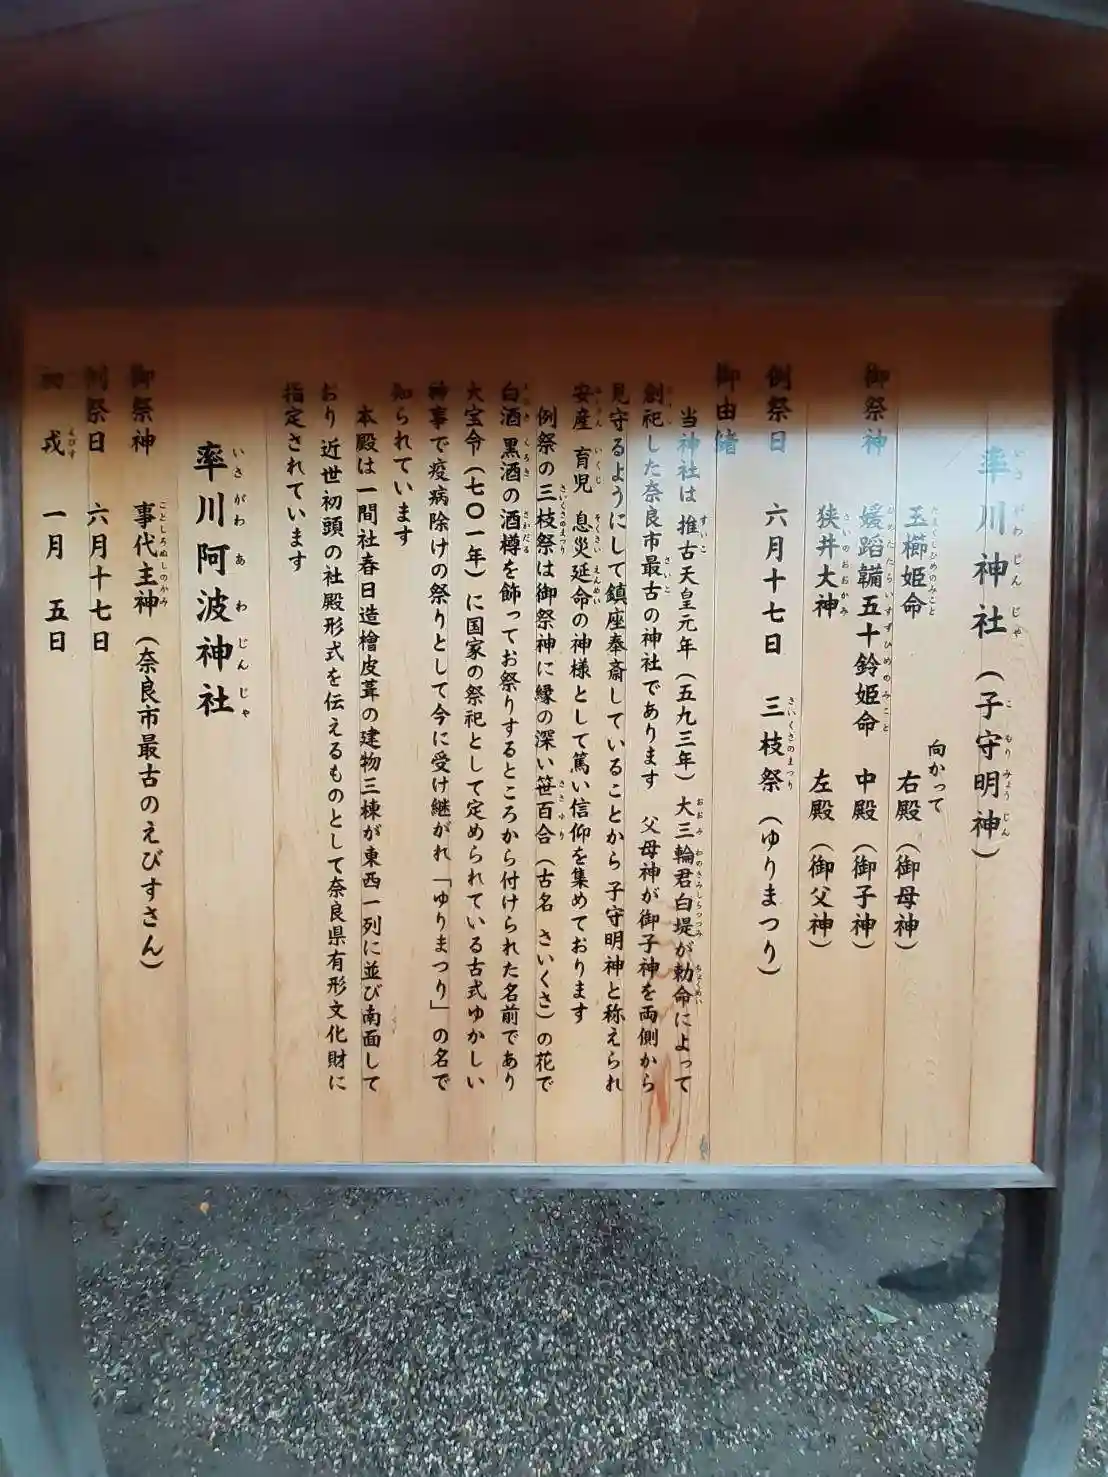 率川神社（子守明神）
向かって
御祭神　玉櫛姫命　右殿（御母神）
媛蹈韛五十鈴姫命　中殿（御子神）
狭井大神　左殿（御父神）
例祭日　六月十七日　三枝祭（ゆりまつり）
御由緒
当神社は推古天皇元年（五九三年）大三輪君白堤が勅命によって
創祀した奈良市最古の神社であります　父母神が御子神を両側から
見守るようにして鎮座奉斎していることから子守明神と称えられ
安産　育児　息災延命の神様として篤い信仰を集めております
例祭の三枝祭は御祭神に縁の深い笹百合（古名　さいくさ）の花で
白酒　黒酒の酒樽を飾ってお祭りするところから付けられた名前であり
大宝令（七〇一年）に国家の祭祀として定められている古式ゆかしい
神事で疫病除けの祭りとして今に受け継がれ「ゆりまつり」の名で
知られています
本殿は一間社春日造檜皮葺の建物三棟が東西一列に並び南面して
おり　近世初頭の社殿形式を伝えるものとして奈良県有形文化財に
指定されています
率川阿波神社
御祭神　事代主神（奈良市最古のえびすさん）
例祭日　六月十七日
初　戎　一月　五日